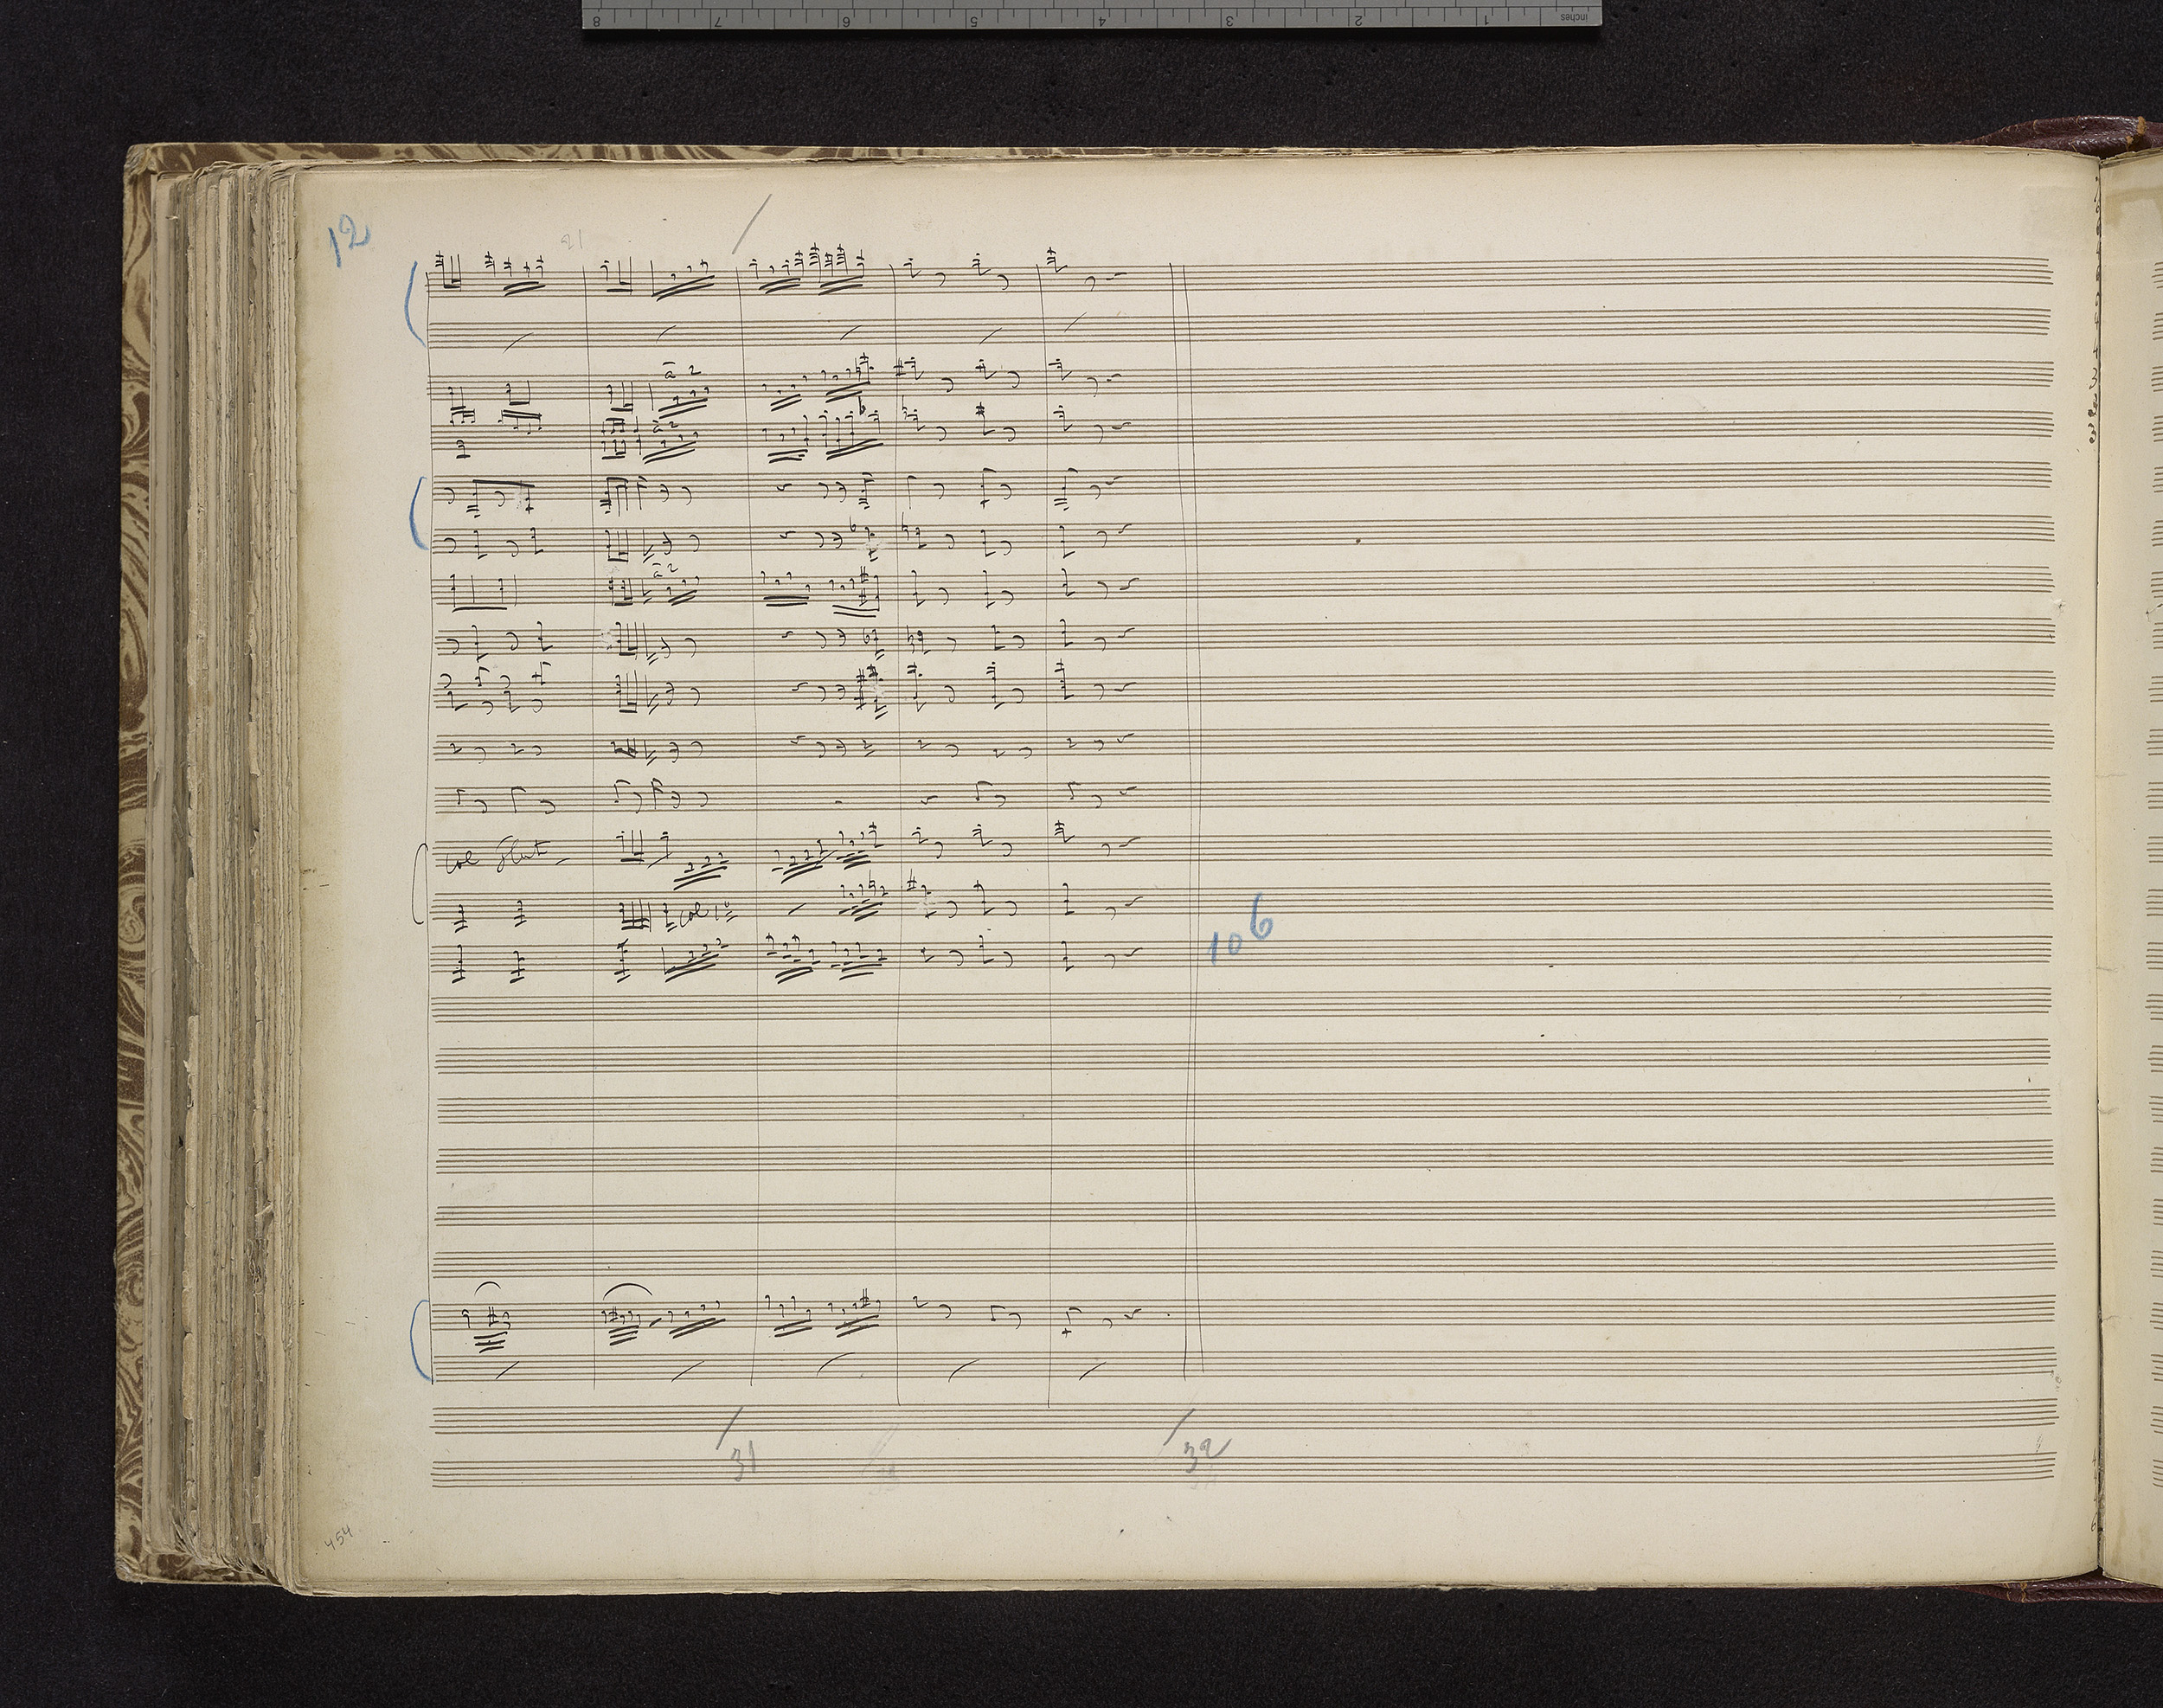 8 7 6 5 4 3 2 1 inches
12
21
a 2
a 2
a 2
col Flut
col 1º
106
31
32
454